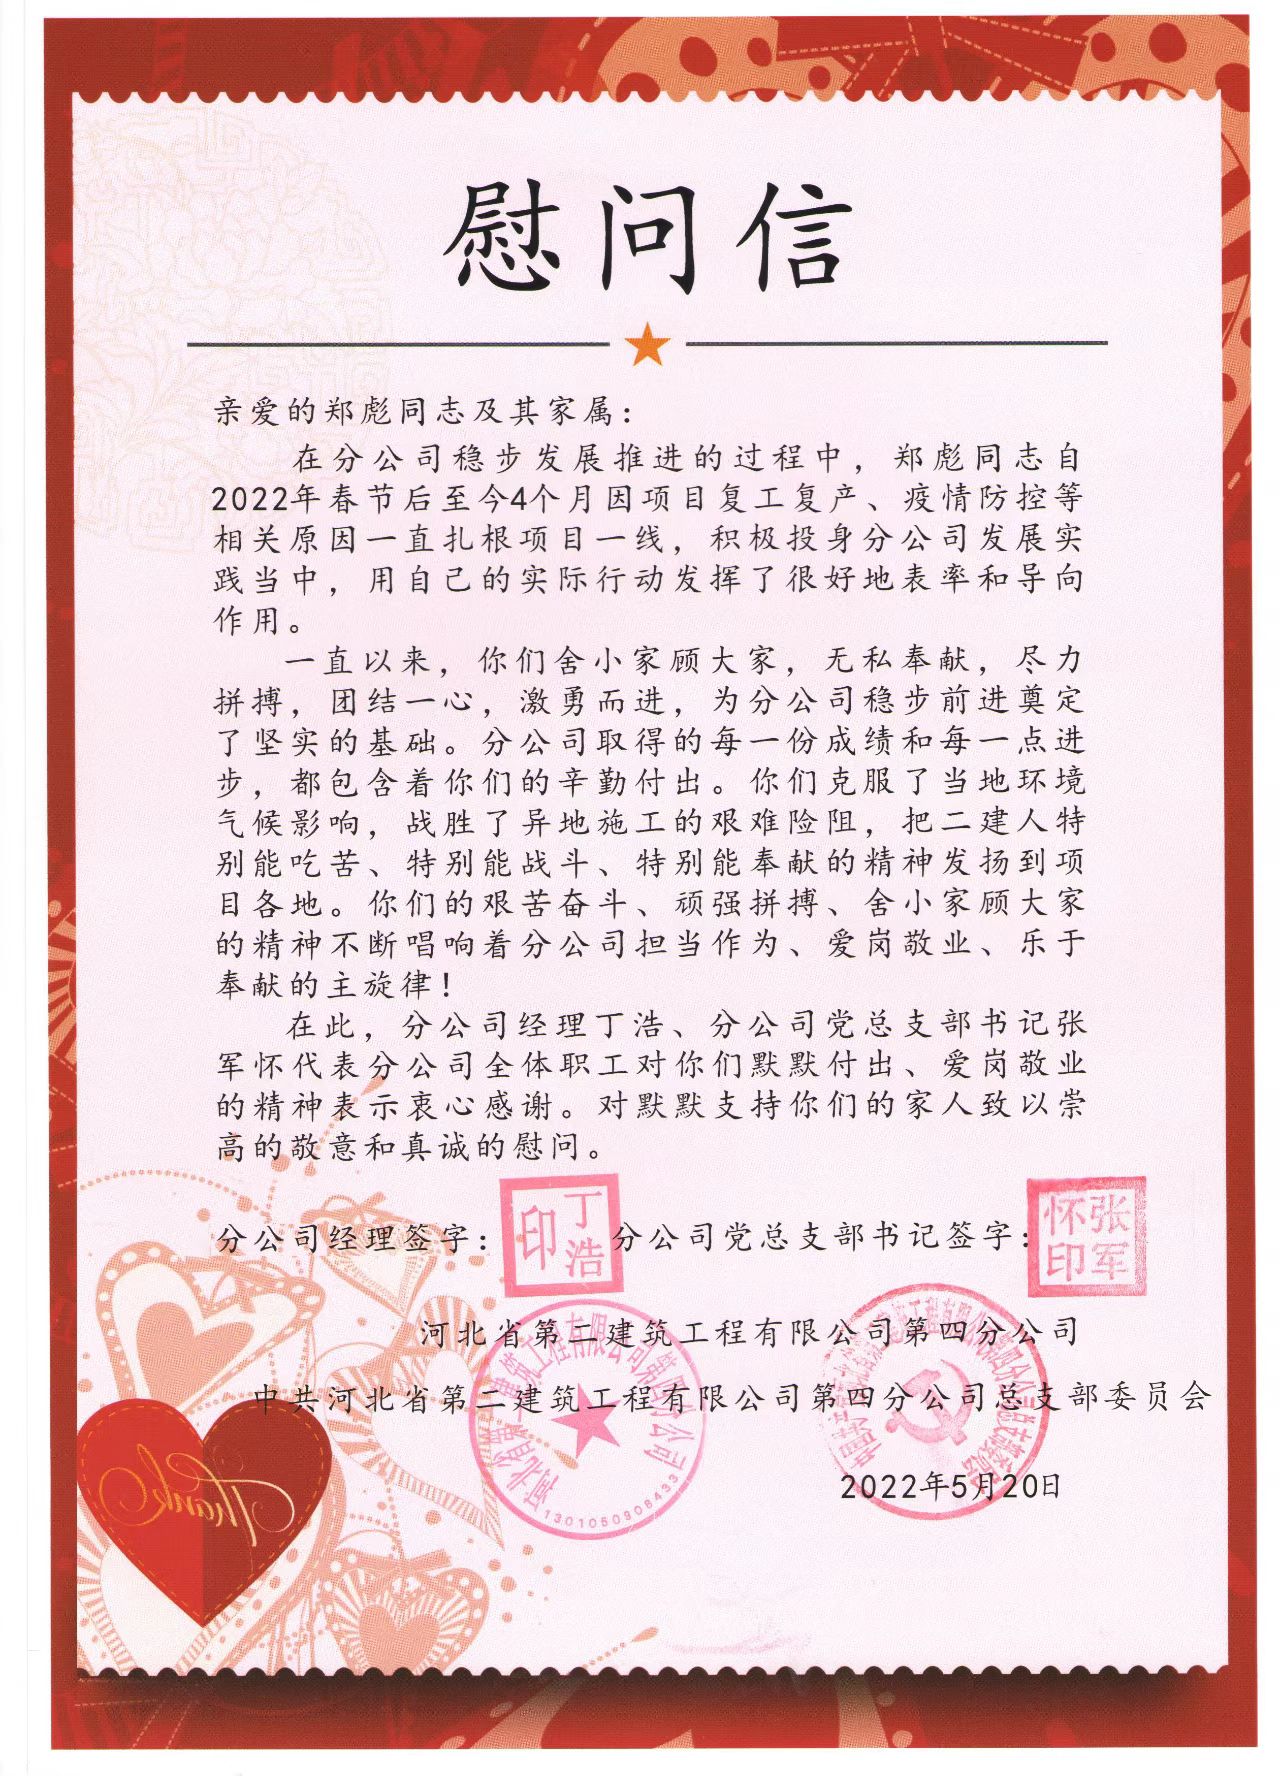 慰问信
亲爱的郑彪同志及其家属：
在分公司稳步发展推进的过程中，郑彪同志自
2022年春节后至今4个月因项目复工复产、疫情防控等
相关原因一直扎根项目一线，积极投身分公司发展实
践当中，用自己的实际行动发挥了很好地表率和导向
作用。
一直以来，你们舍小家顾大家，无私奉献，尽力
拼搏，团结一心，激勇而进，为分公司稳步前进奠定
了坚实的基础。分公司取得的每一份成绩和每一点进
步，都包含着你们的辛勤付出。你们克服了当地环境
气候影响，战胜了异地施工的艰难险阻，把二建人特
别能吃苦、特别能战斗、特别能奉献的精神发扬到项
目各地。你们的艰苦奋斗、顽强拼搏、舍小家顾大家
的精神不断唱响着分公司担当作为、爱岗敬业、乐于
奉献的主旋律！
在此，分公司经理丁浩、分公司党总支部书记张
军怀代表分公司全体职工对你们默默付出、爱岗敬业
的精神表示衷心感谢。对默默支持你们的家人致以崇
高的敬意和真诚的慰问。
分公司经理签字：丁浩印 分公司党总支部书记签字：张军怀印
河北省第二建筑工程有限公司第四分公司
中共河北省第二建筑工程有限公司第四分公司总支部委员会
2022年5月20日
河北省第二建筑工程有限公司第四分公司
Thanks